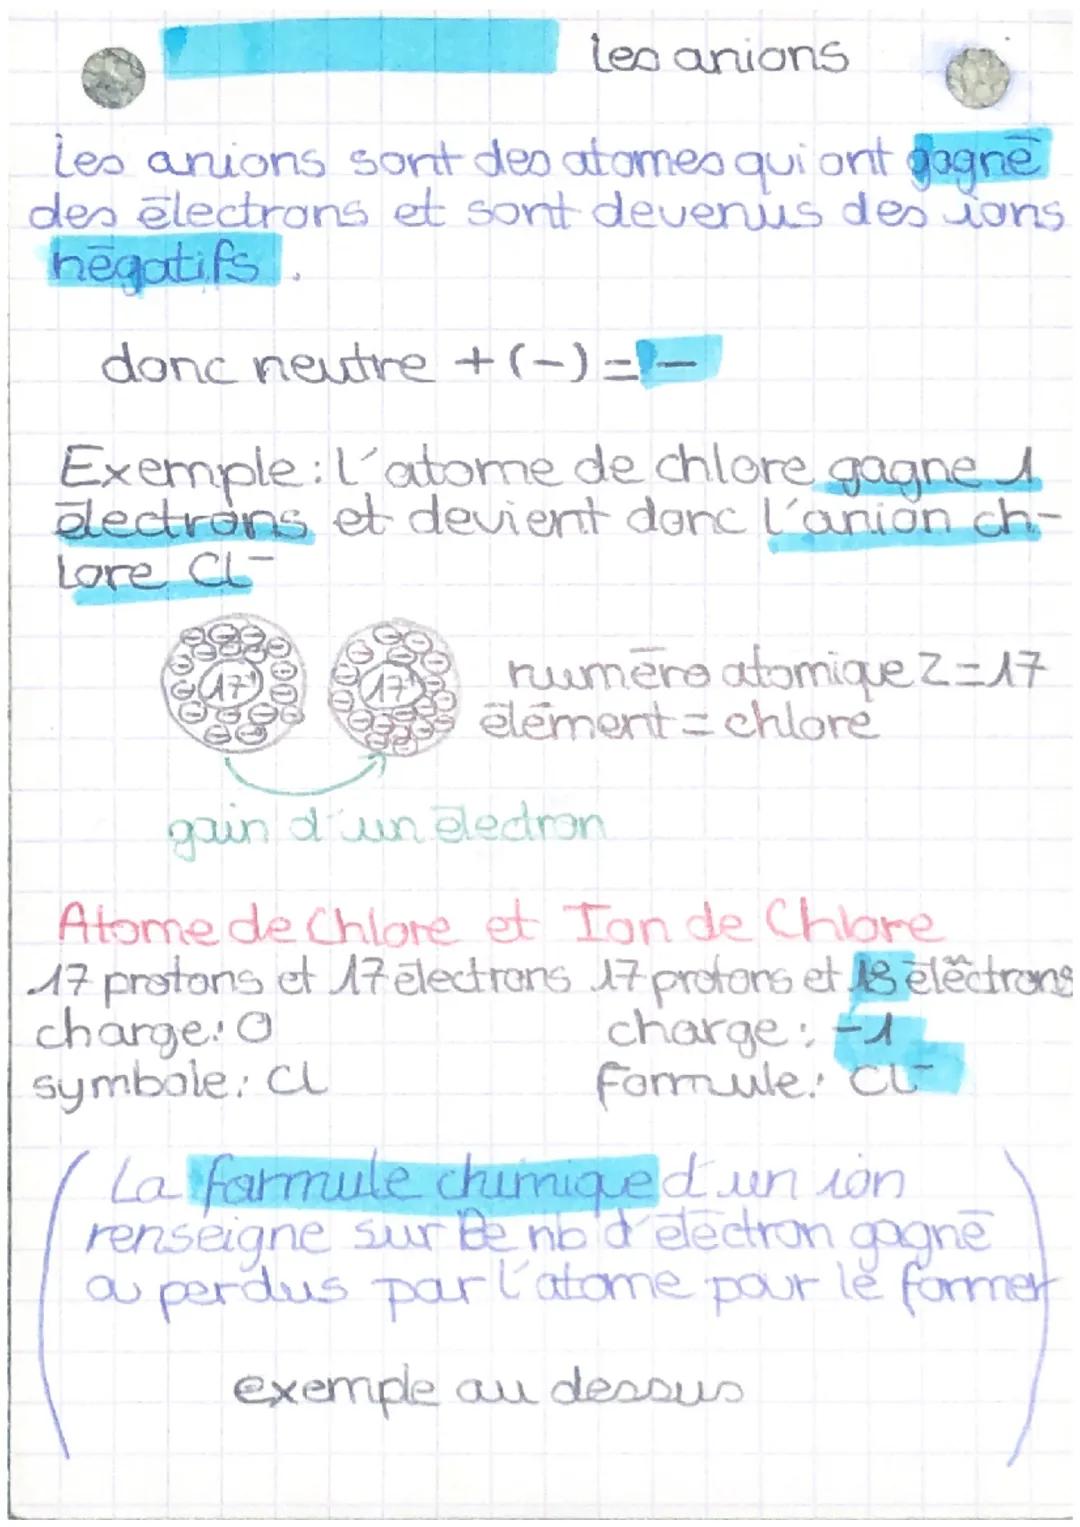 les anions
Les anions sont des atomes qui ont gagné
des électrons et sont devenus des ions
négatifs.
donc neutre + (-) = -
Exemple: l'atome de chlore gagne 1
électrons et devient donc l'anion ch-
lore Cl⁻
17+ 17+ numéro atomique Z=17
élément = chlore
gain d'un électron
Atome de Chlore et Ion de Chlore
17 protons et 17 électrons 17 protons et 18 électrons
charge: 0 charge: -1
symbole: Cl formule: Cl⁻
La formule chimique d'un ion
renseigne sur le nb d'électron gagné
ou perdus par l'atome pour le former
exemple au dessus